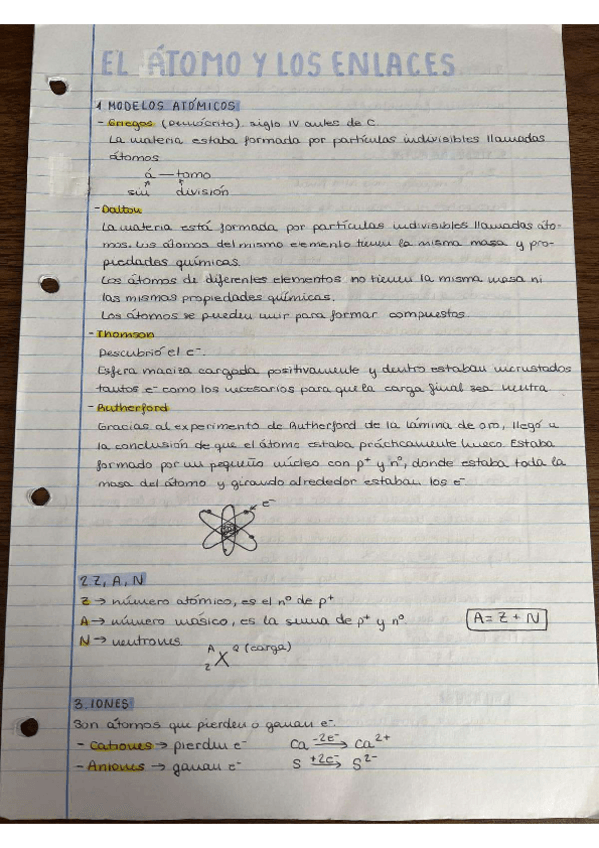 EL ÁTOMO Y LOS ENLACES
1 MODELOS ATÓMICOS
- Griegos (Demócrito) siglo IV antes de C
La materia estaba formada por partículas indivisibles llamadas
átomos
á — tomo
sin división
- Dalton
La materia está formada por partículas indivisibles llamadas áto-
mos. Los átomos del mismo elemento tienen la misma masa y pro-
piedades químicas.
Los átomos de diferentes elementos no tienen la misma masa ni
las mismas propiedades químicas.
Los átomos se pueden unir para formar compuestos.
- Thomson
Descubrió el e⁻.
Esfera maciza cargada positivamente y dentro estaban incrustados
tantos e⁻ como los necesarios para que la carga final sea neutra
- Rutherford
Gracias al experimento de Rutherford de la lámina de oro, llegó a
la conclusión de que el átomo estaba prácticamente hueco. Estaba
formado por un pequeño núcleo con p⁺ y n⁰, donde estaba toda la
masa del átomo y girando alrededor estaban los e⁻
e⁻
2. Z, A, N
Z → número atómico, es el nº de p⁺
A → número másico, es la suma de p⁺ y n⁰
A = Z + N
N → neutrones
A X Q (carga)
Z
3. IONES
Son átomos que pierden o ganan e⁻.
- Cationes → pierden e⁻ Ca -2e⁻→ Ca²⁺
- Aniones → ganan e⁻ S +2e⁻→ S²⁻